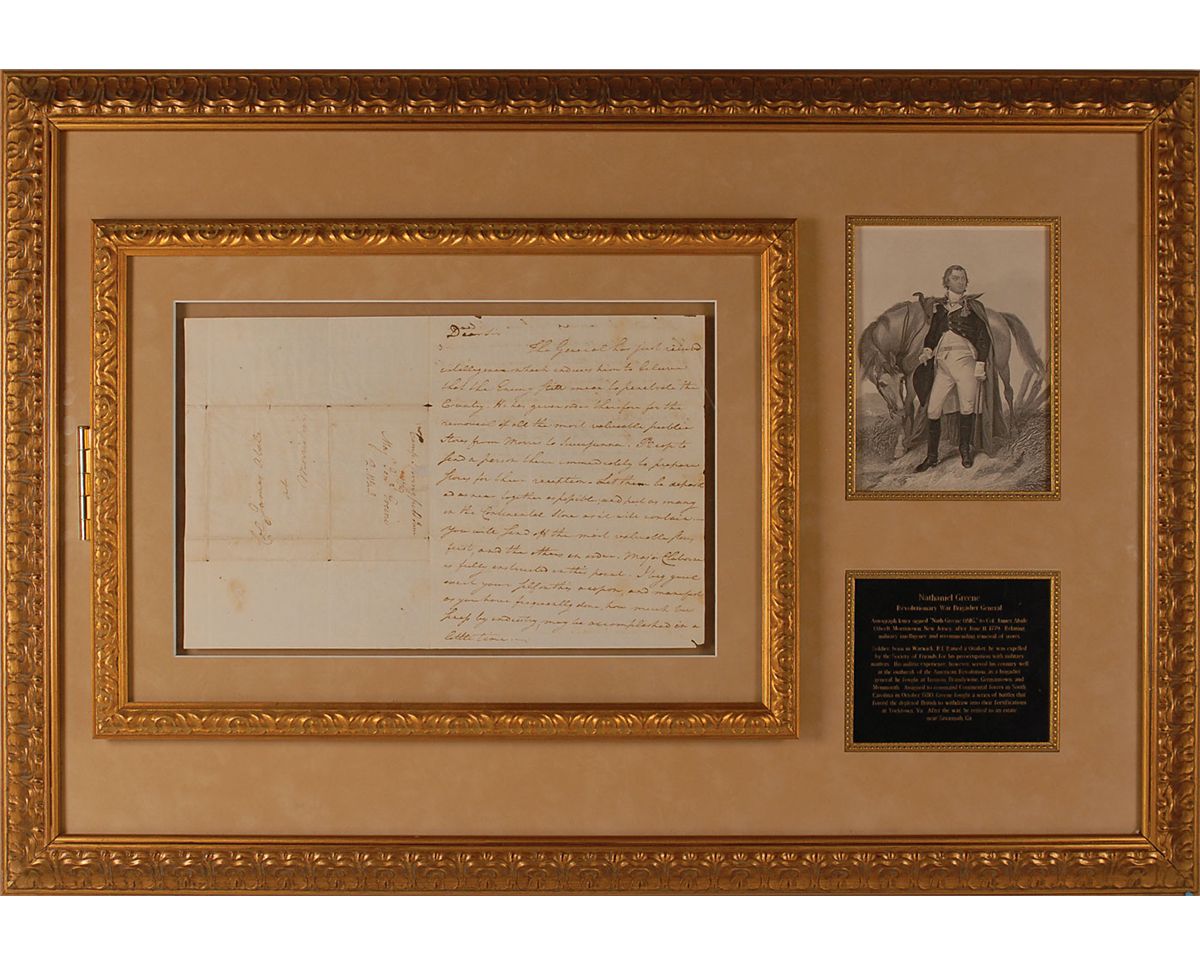 Col. James Abeel
at
Morristown
Dear Sir
The General has just received
intelligence which induces him to believe
that the Enemy still mean to penetrate the
Country. He has given orders therefore for the
removal of all the most valuable public
Stores from Morris to
send a person there immediately to prepare
Stores for their reception. Let them be deposit
ed as near together as possible, and put as many
in the Continental Store as it will contain
You will send off the most valuable Stores
first, and the others in order. Major Claiborne
is fully instructed in this point. I beg you'l
exert your self on this occasion, and manifest
as you have frequently done, how much
may be accomplished in a
little time.
Nathaniel Greene
Revolutionary War Brigadier General
Autograph letter signed "Nath Greene QMG," to Col. James Abale
(Abeel) Morristown, New Jersey, after June 11, 1779. Relating
military intelligence and recommending removal of stores.
Soldier, born in Warwick, R.I. Raised a Quaker, he was expelled
by the Society of Friends for his preoccupation with military
matters. His militia experience, however, served his country well
at the outbreak of the American Revolution. As a brigadier
general, he fought at Trenton, Brandywine, Germantown, and
Monmouth. Assigned to command Continental forces in South
Carolina in October 1780, Greene fought a series of battles that
forced the depleted British to withdraw into their fortifications
at Yorktown, Va. After the war, he retired to an estate
near Savannah, Ga.